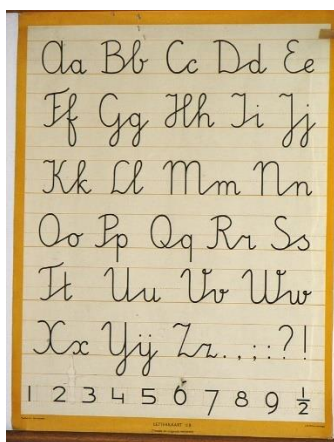 Aa Bb Cc Dd Ee
Ff Gg Hh Ii Jj
Kk Ll Mm Nn
Oo Pp Qq Rr Ss
Tt Uu Vv Ww
Xx Yÿ Zz.,;:?!
1 2 3 4 5 6 7 8 9 ½